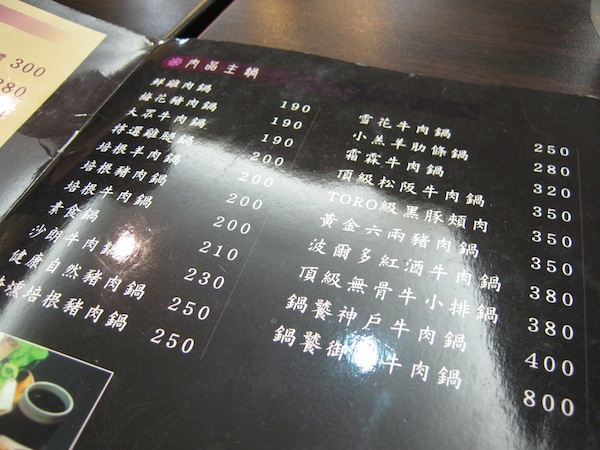 300
280
肉品主鍋
鮮雞肉鍋 190
梅花豬肉鍋 190
大眾牛肉鍋 190
雞腿鍋 200
培根羊肉鍋 200
培根豬肉鍋 200
培根牛肉鍋 200
素食鍋 210
沙朗牛肉鍋 230
健康自然豬肉鍋 250
燻培根豬肉鍋 250
雪花牛肉鍋 250
小羔羊肋條鍋 280
霜霖牛肉鍋 320
頂級松阪牛肉鍋 350
TORO級黑豚頰肉 350
黃金六兩豬肉鍋 350
波爾多紅酒牛肉鍋 380
頂級無骨牛小排鍋 380
鍋饕神戶牛肉鍋 400
鍋饕御 牛肉鍋 800